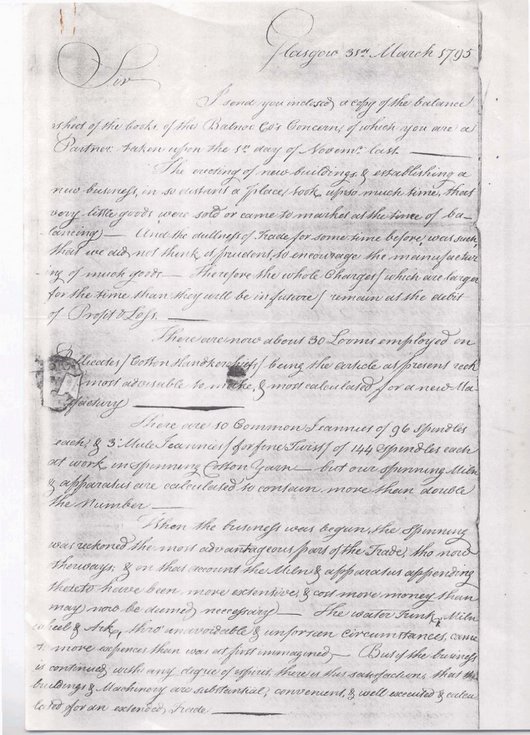 Glasgow 31st March 1795
Sir
I send you inclosed a copy of the balance
sheet of the books of the Balnoe Co's Concern, of which you are a
Partner taken upon the 1st day of Novemr. last.
The erecting of new buildings, & establishing a
new business, in so distant a place, took up so much time, that
very little goods were sold or came to market at the time of ba-
lancing — And the dullness of Trade for some time before, was such,
that we did not think it prudent to encourage the manufactur
ing of much goods — Therefore the whole Charges / which are larger
for the time than they will be in future / remain at the debit
of Profit & Loss.
There are now about 30 Looms employed on
Pullicates / Cotton Handkerchiefs / being the article at present reck
most advisable to make, & most calculated for a new Ma-
factory
There are 10 Common Jeannies of 96 Spindles
each; & 3 Mule Jeannies / for fine Twist / of 144 Spindles each
at work in spinning Cotton Yarn — but our Spinning Miln
& apparatus are calculated to contain more than double
the Number —
When the business was begun, the Spinning
was reckoned the most advantageous part of the Trade, tho now
otherways; & on that account the Miln & apparatus appending
thereto have been more extensive, & cost more money than
may now be deemed necessary — The water Trink, Miln
wheel & Ark, thro' unavoidable & unforseen circumstances, came
to more expences than was at first immagined — But if the business
is continued with any degree of spirit, there is this satisfaction, that the
buildings & Machinery are substantial, convenient, & well executed & calcu
lated for an extended Trade